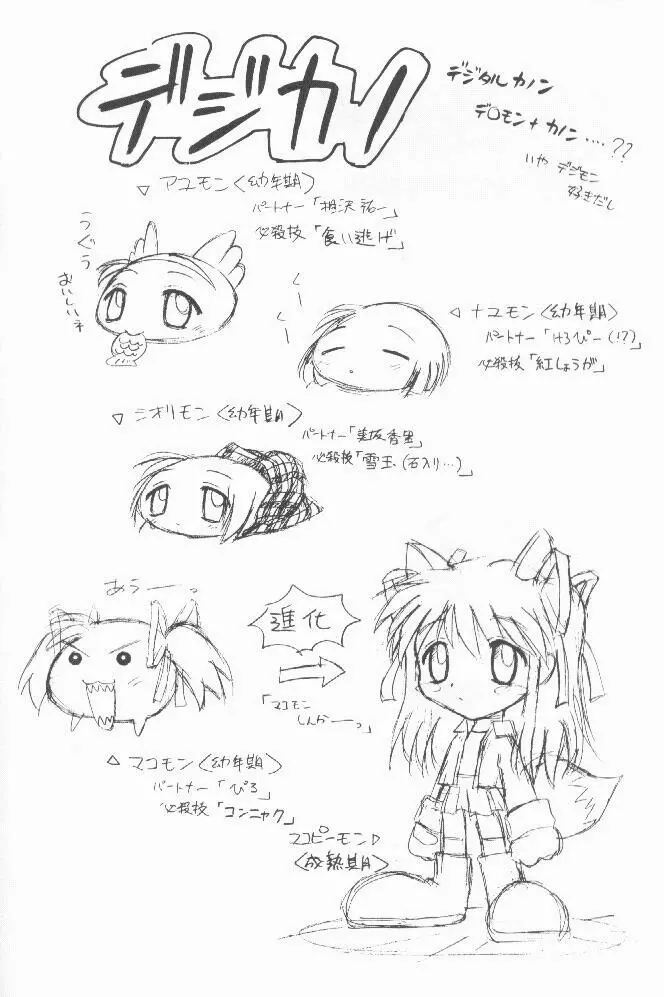 デジカノ
デジタルカノン
デ○モン+カノン....??
いや デジモン
好きだし
▽ アユモン〈幼年期〉
パートナー「相沢祐一」
必殺技「食い逃げ」
うぐぅ
おいしいネ
くー
くー
◁ ナユモン〈幼年期〉
パートナー「けろぴー(!?)」
必殺技「紅しょうが」
▽ シオリモン〈幼年期〉
パートナー「美坂香里」
必殺技「雪玉(石入り…)」
あぅーっ
進化
「マコモン
しんかーっ」
△ マコモン〈幼年期〉
パートナー「ぴろ」
必殺技「コンニャク」
マコピーモン▷
〈成熟期〉